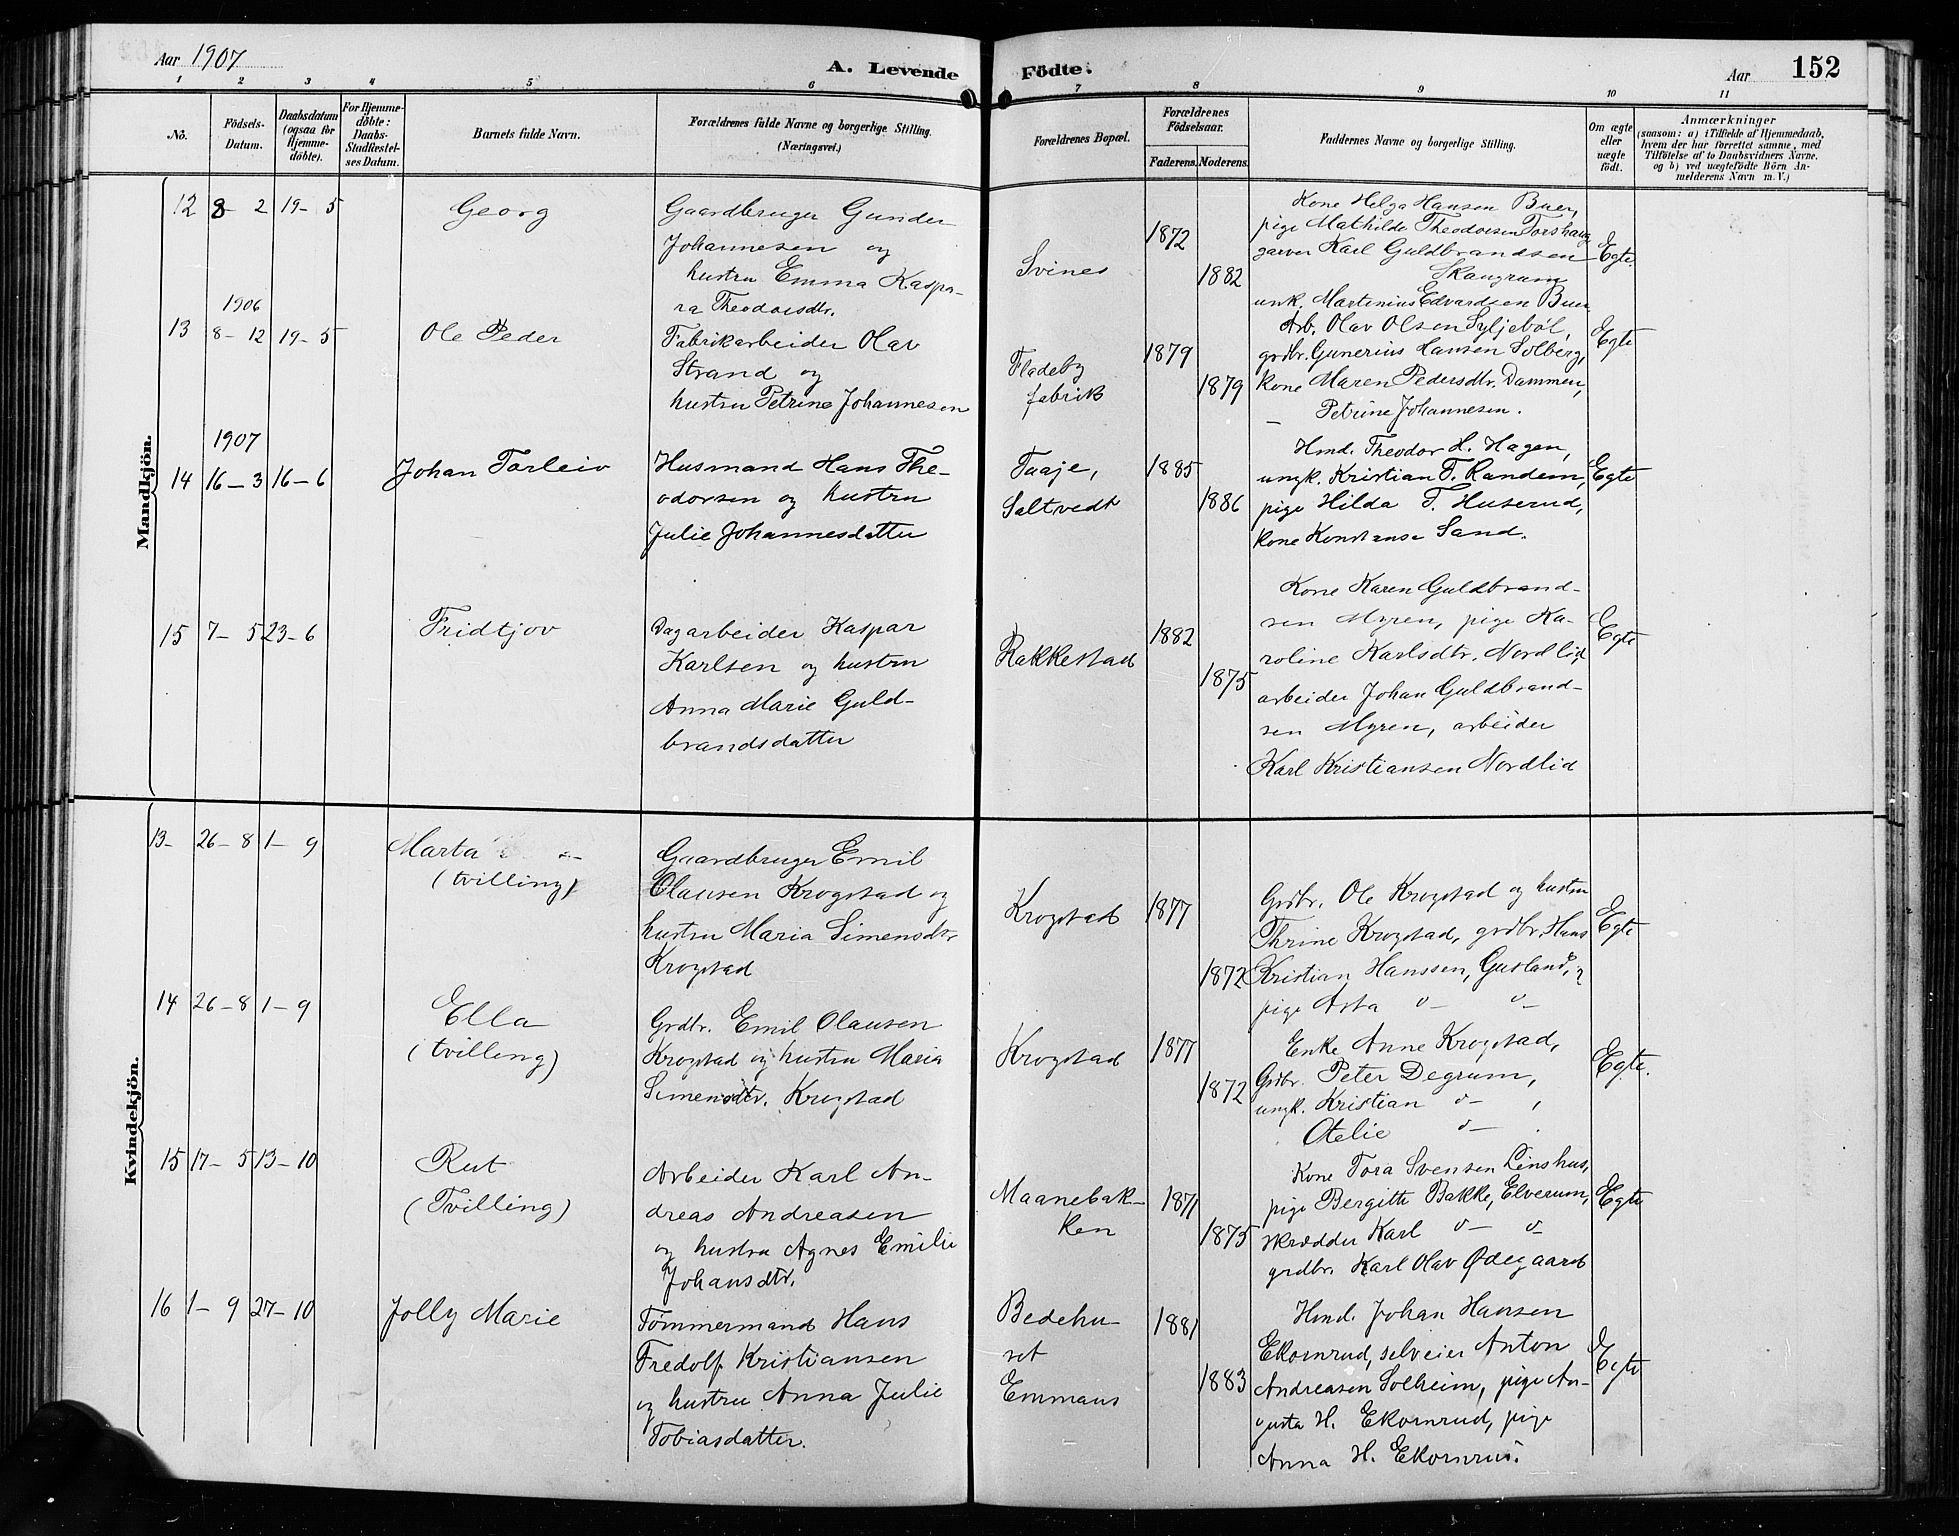 Aar 1907
A. Levende Födte.
Aar 152
1 2 3 4 5 6 7 8 9 10 11
No.
Födsels-
Datum.
Daabsdatum
(ogsaa for
Hjemme-
döbte).
For Hjemme-
döbte:
Daabs-
Stadfæstel-
ses Datum.
Barnets fulde Navn.
Forældrenes fulde Navne og borgerlige Stilling.
(Næringsvei.)
Forældrenes Bopæl.
Forældrenes
Födselsaar.
Faderens. Moderens.
Faddernes Navne og borgerlige Stilling.
Om ægte
eller
uægte
födt.
Anmærkninger
(saasom: a) i Tilfælde af Hjemmedaab,
hvem der har forrettet samme, med
Tilföielse af to Daabsvidners Navne,
og b) ved uægtefödte Börn An-
melderens Navn m. V.)
Mandkjön.
12 8-2 19-5
Georg
Gaardbruger Gunder
Johannesen og
hustru Emma Kaspa-
ra Theodorsdtr.
Svines
1872
1882
Kone Helga Hansen Buer,
pige Mathilde Theodorsen Torshaug
garver Karl Guldbrandsen
Skaugrum
unk. Martinius Edvardsen Buer
Egte.
1906
13 8-12 19-5
Ole Peder
Fabrikarbeider Olav
Strand og
hustru Petrine Johannesen
Fladeby
fabrik
1879
1879
Arb. Olav Olsen Syljeböl,
grdbr. Gunerius Hansen Solberg,
kone Maren Pedersdtr. Dammen,
— Petrine Johannesen.
Egte
1907
14 16-3 16-6
Johan Torleiv
Husmand Hans The-
odorsen og hustru
Julie Johannesdatter
Taaje,
Saltvedt
1885
1886
Hmd. Theodor H. Hagen,
ungk. Kristian T. Randem,
pige Hilda T. Huserud,
kone Konstanse Sand.
Egte
15 7-5 23-6
Fridtjov
Dagarbeider Kaspar
Karlsen og hustru
Anna Marie Guld-
brandsdatter
Rakkestad
1882
1875
Kone Karen Guldbrand-
sen Myren, pige Ka-
roline Karlsdtr. Nordlid,
arbeider Johan Guldbrand-
sen Myren, arbeider
Karl Kristiansen Nordlid
Egte
Kvindekjön.
13- 26-8 1-9
Marta
(tvilling)
Gaardbruger Emil
Olausen Krogstad og
hustru Maria Simensdtr.
Krogstad
Krogstad
1877
1872
Grdbr. Ole Krogstad og hustru
Thrine Krogstad, grdbr. Hans
Kristian Hanssen, Gusland,
pige Asta — —
Egte
14 26-8 1-9
Ella
(tvilling)
Grdbr. Emil Olausen
Krogstad og hustru Maria
Simensdtr. Krogstad
Krogstad
1877
1872
Enke Anne Krogstad,
Grdbr. Peter Degrum,
ungk. Kristian — ,
Otelie — .
Egte.
15 17-5 13-10
Rut
(Tvilling)
Arbeider Karl An-
dreas Andreasen
og hustru Agnes Emilie
Johansdtr.
Maanebak-
ken
1871
1875
Kone Tora Svensen Linshus,
pige Bergitte Bakke, Elverum,
skrædder Karl — —
grdbr. Karl Olav Ødegaard
Egte
16 1-9 27-10
Jolly Marie
Tømmermand Hans
Fredolf Kristiansen
og hustru Anna Julie
Tobiasdatter.
Bedehu-
set
Emmaus
1881
1883
Hmd. Johan Hansen
Ekornrud, selveier Anton
Andreasen Solheim, pige Au-
gusta H. Ekornrud, pige
Anna H. Ekornrud.
Egte